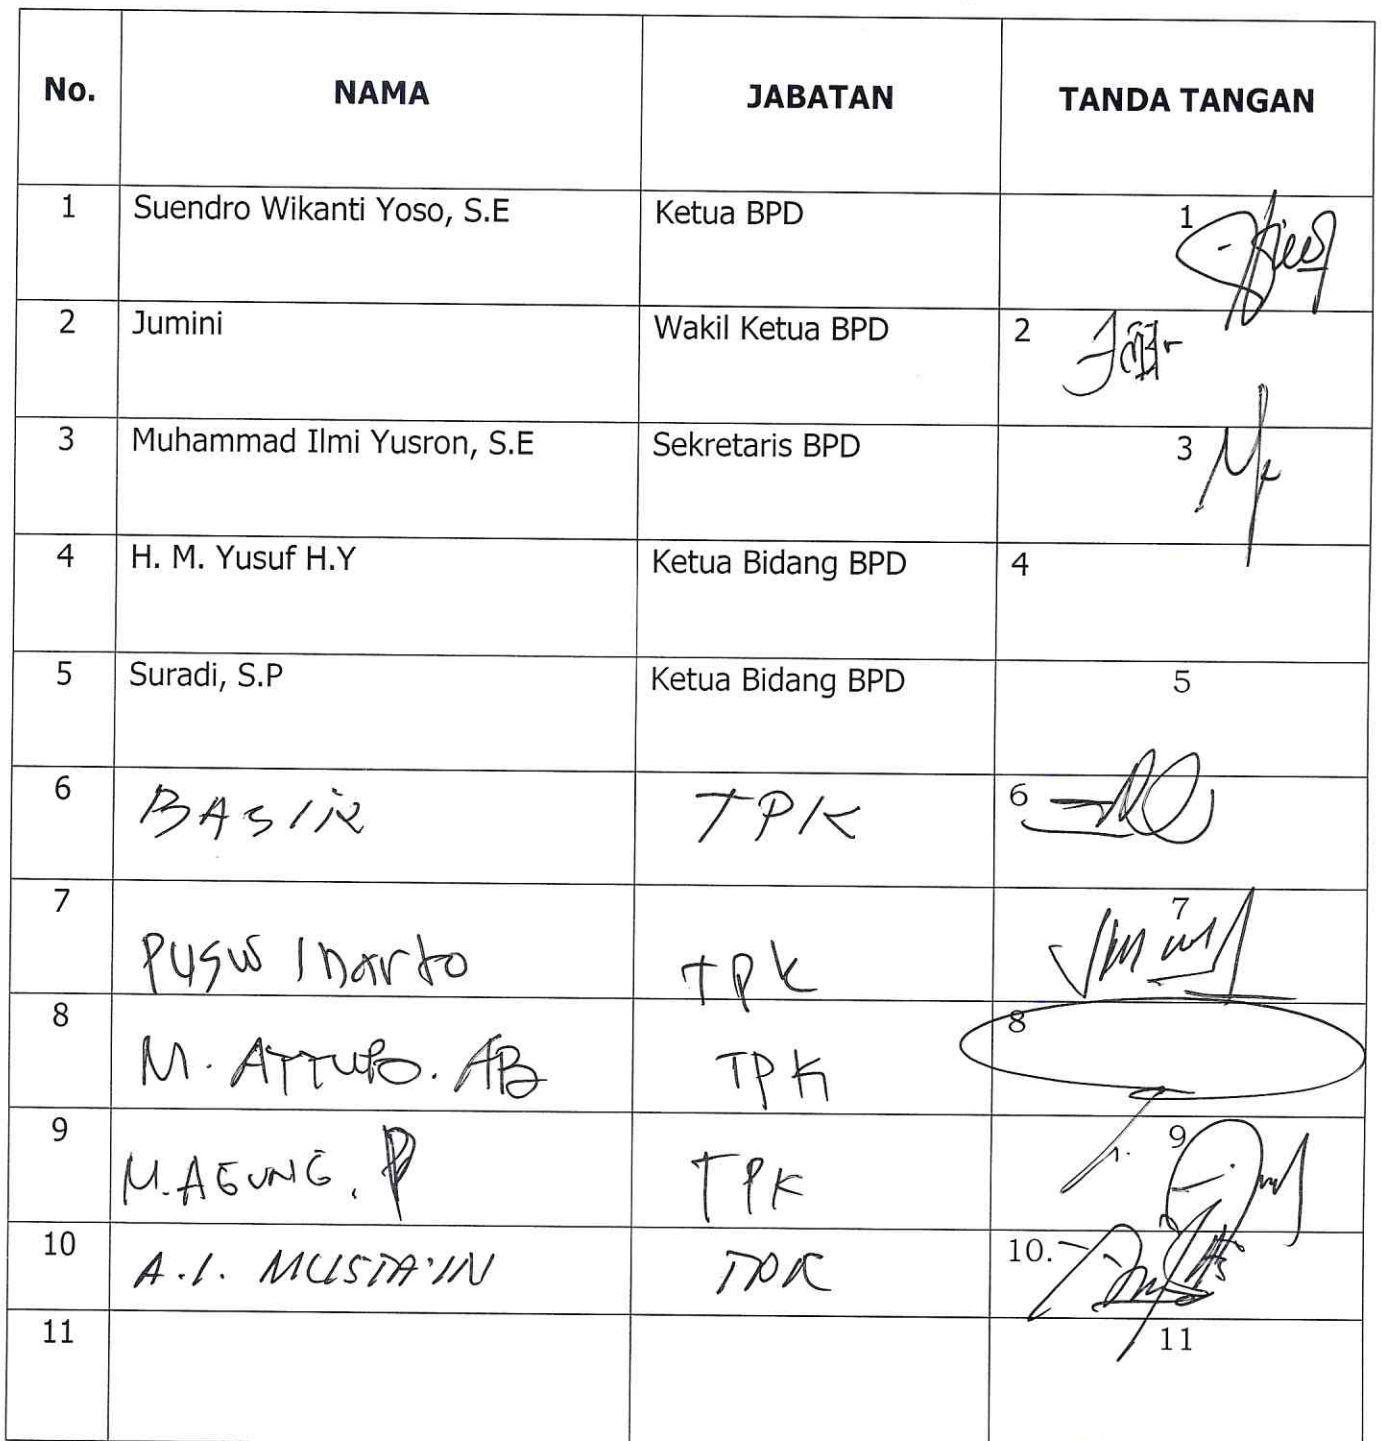 No. NAMA JABATAN TANDA TANGAN
1 Suendro Wikanti Yoso, S.E Ketua BPD 1
2 Jumini Wakil Ketua BPD 2
3 Muhammad Ilmi Yusron, S.E Sekretaris BPD 3
4 H. M. Yusuf H.Y Ketua Bidang BPD 4
5 Suradi, S.P Ketua Bidang BPD 5
6 BASIR TPK 6
7 TPK 7
8 M. TPK 8
9 M. AGUNG. P TPK 9
10 A.I. MUSTA'IN TPK 10.
11 11